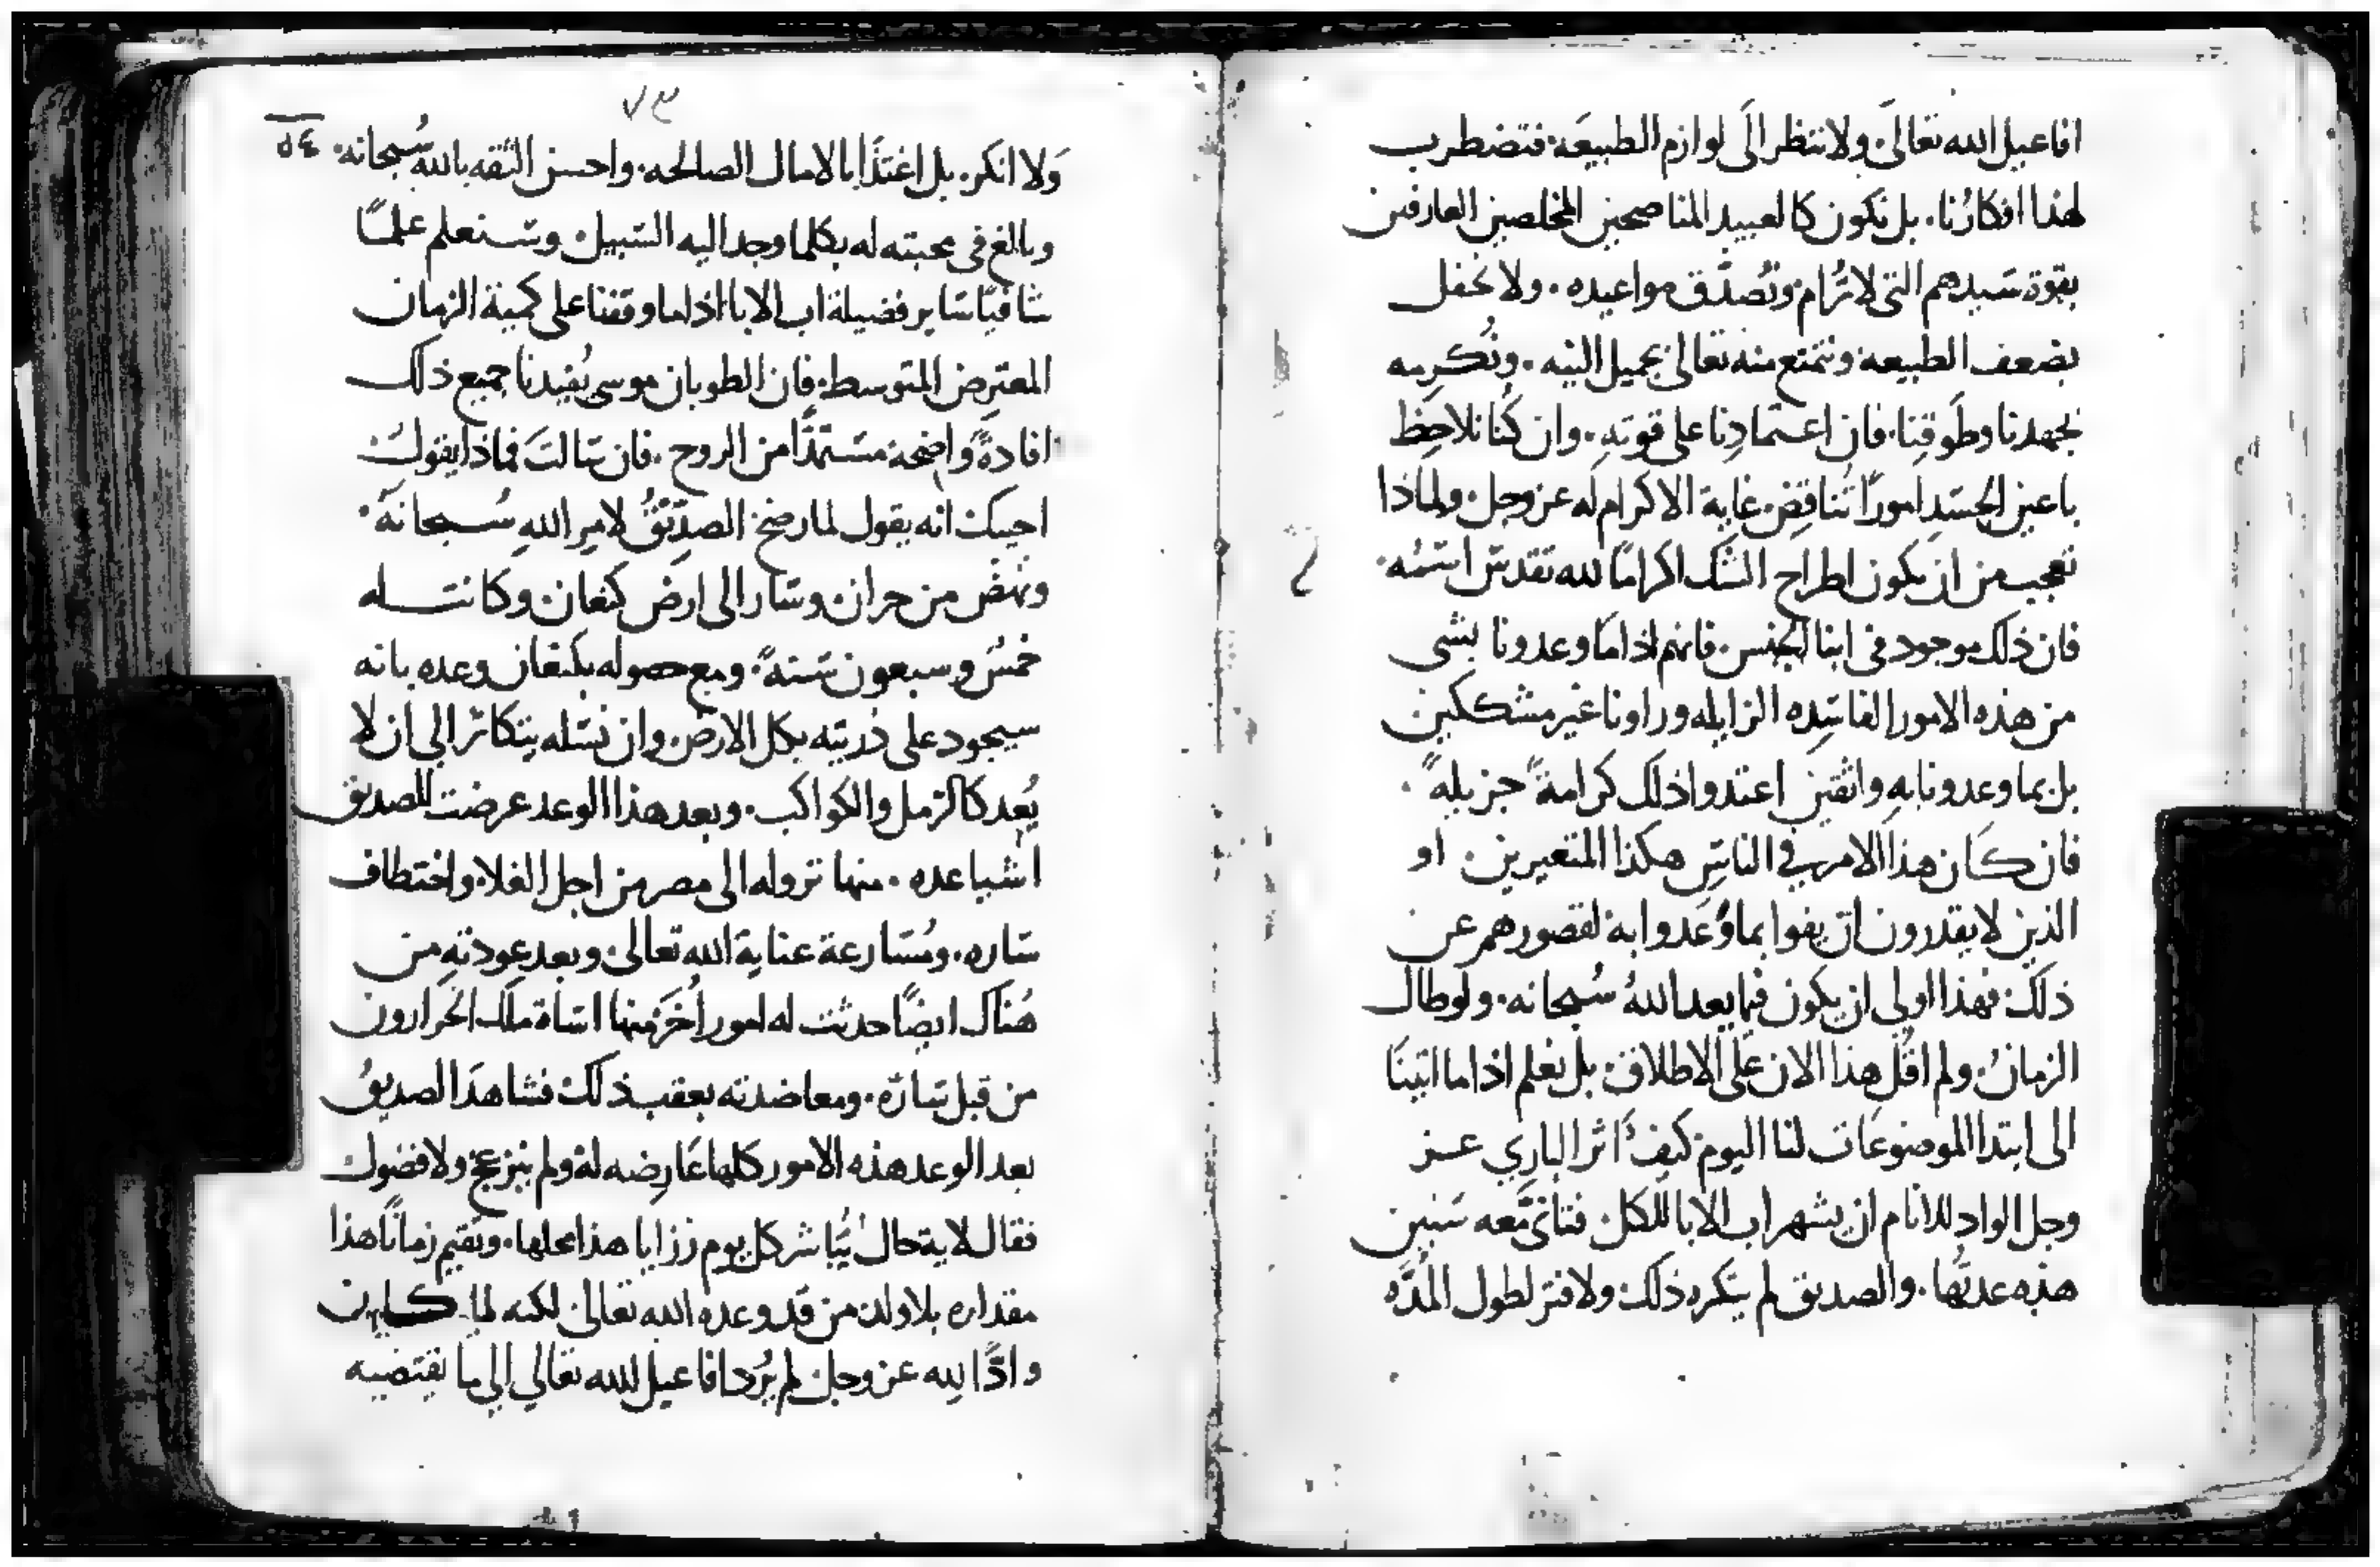 افاعيل الله تعالى. ولا ننظر الى لوازم الطبيعه. فتضطرب
لهذا افكارُنا. بل نكون كالعبيد المناصحين المخلصين العارفين
بقوة سَيدهم التي لا تُرام ونُصدّق مواعيده. ولا نحفل
بضعف الطبيعه ونتمتع منه تعالى بجميل النيه. ونُكرمه
بجهدنا وطَوقِنا. فان اعتمادِنا على قوتهِ. وان كُنا نلاحِظ
باعين الجسَدِ امورًا تُناقِض غاية الاكرام له عز وجل. ولماذا
تعجب من ان يكون اطراح الشك اكرامًا لله تقدسَ اسمُه.
فان ذلك موجود في ابنا الجنس. فانهم اذا ما وعدونا بشى
من هذه الامور الفاسِده الزايله وراونا غير مشككين
بل بما وعدونا بهِ واثقين اعتدوا ذلك كرامةً جزيلهً.
فان كَان هذا الامر في الناسِ هكذا المتغيرين. او
الذين لا يقدرون ان يفوا بما وُعَدوا به لقصورهم عن
ذلك. فهذا اولى ان يكون فيما يعد اللهُ سُبحانه. ولو طال
الزمانُ. ولم اقُل هذا الان على الاطلاق. بل لنعلم اذا ما اتينَا
الى ابتدا الموضوعَات لنا اليوم كيف اثر الباري عــز
وجل الواد للانام ان يشهر اب الابا للكل. فتانىّ معه سَنين
هذه عدتُها. والصديق لم يَكره ذلك ولا فتر لطول المُدَّه
٧٣
٥٤
وَلا انكر. بل اغتذَا بالامال الصالحه. واحسن الثقه بالله سُبحانه.
وبالغ في محبته له بكلما وجد اليه السَبيل. وسَــنعلم علمًا
شافيًا سَاير فضيلة اب الابا اذا ما وقفنا على كمية الزمان
المعترِض المتوسط. فان الطوبان موسى يُفيدنا جميع ذلك
افادةً وَاضحة مسَتمدًا من الروح. فان سَالتَ فماذا يقولُ
اجبتك انه يقول لما رضخ الصدِّيْقُ لامِر اللهِ سُــبحانهُ.
ونهَض من حران. وسَار الى ارض كنعان. وكانت له
خمسَ وسبعون سَنةً. ومع حصوله بكنعان وعده بانه
سيجود على ذريته بكل الارض. وان نسَله يتكاثر الى ان لا
يُعد كالرَمل والكواكب. وبعد هذا الوعد عرضت للصديق
اشيا عده. منها نزوله الى مصر من اجل الغلا. واختطاف
سَاره. ومُسَارعة عناية الله تعالى. وبعد عودتهِ من
هُناك ايضًا حدثت له امور اُخَر. منها اسَاة ملك الخَرارون
من قبل سَارَه. ومعاضدته بعقب ذلك. فشاهدَ الصديقُ
بعد الوعد هذه الامور كلها عَارِضه لهُ ولم ينزعج ولا فضول
فقال لاية حال يُباشر كل يوم رزايا هذا محلها. ويُقيم زمانًا هذا
مقداره بلا ولد من قد وعده الله تعالى. لكنه لما كــان
وادًّا لله عز وجل. لم يُرد افاعيل الله تعالي الي ما تقتضيه